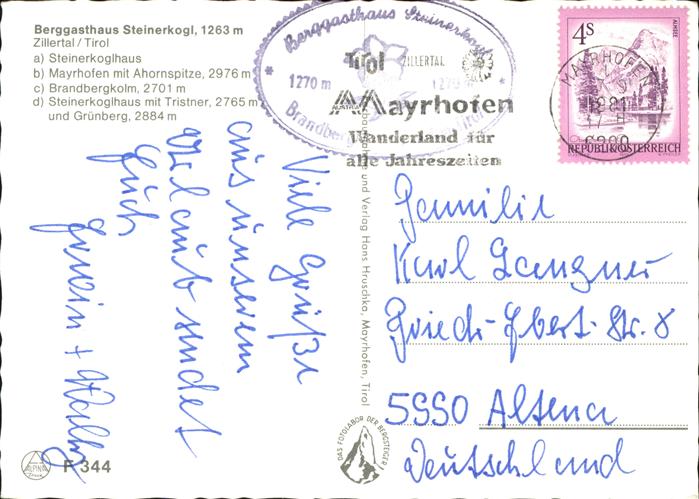 Berggasthaus Steinerkogl, 1263 m
Zillertal / Tirol
a) Steinerkoglhaus
b) Mayrhofen mit Ahornspitze, 2976 m
c) Brandbergkolm, 2701 m
d) Steinerkoglhaus mit Tristner, 2765 m
und Grünberg, 2884 m
Berggasthaus Steinerkogl
1270 m
Brandberg
Tirol ZILLERTAL
Mayrhofen
Wanderland für
alle Jahreszeiten
MAYRHOFEN
4S
ALMSEE
REPUBLIK ÖSTERREICH
Viele Grüße
aus unserem
Urlaub sendet
Euch
Erwin +
Familie
Karl Langner
Friedr.-Ebert-Str. 8
5990 Altena
Deutschland
und Verlag Hans Hruschka, Mayrhofen, Tirol
DAS FOTOLABOR DER BERGSTEIGER
ALPINA
F 344